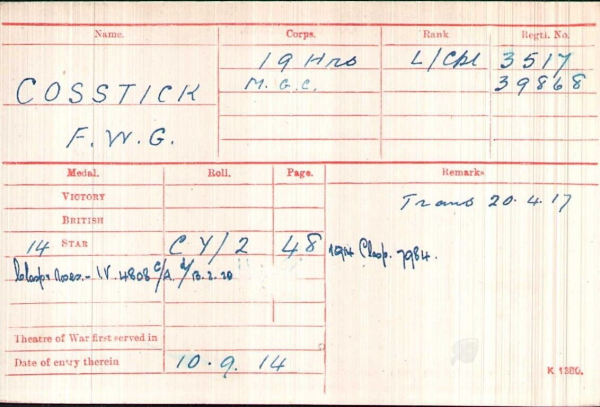 Name. Corps. Rank Regtl. No.
COSSTICK 19 Hrs L/Cpl 3517
M.G.C. 39868
F.W.G.
Medal. Roll. Page. Remarks
VICTORY Trans 20.4.17
BRITISH
14 STAR CY/2 48 1914 Clasp. 7984.
Clasp & Roses - IV. 4808
Theatre of War first served in
Date of entry therein 10.9.14
K 1380.